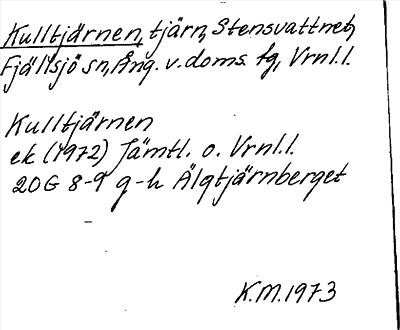 Kulltjärnen, tjärn, Stensvattnet,
Fjällsjö sn, Ång. v. doms. fg, Vrnl.l.
Kulltjärnen
ek (1972) Jämtl. o. Vrnl.l.
20G 8-9 g-h Älgtjärnberget
K.M. 1973